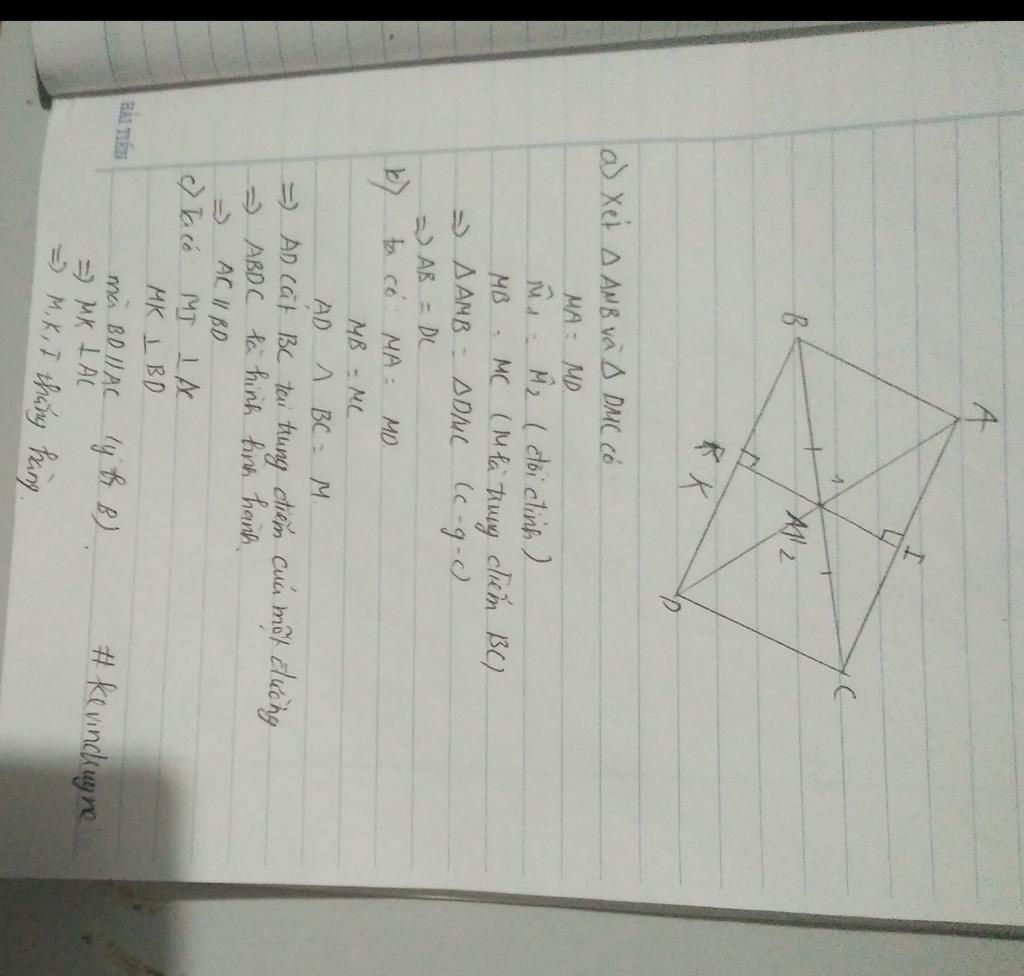 A
B
I
1
M
2
C
K
D
a) Xét Δ AMB và Δ DMC có
MA = MD
M̂1 = M̂2 (đối đỉnh)
MB = MC (M là trung điểm BC)
=) ΔAMB = ΔDMC (c-g-c)
=) AB = DC
b) ta có MA = MD
MB = MC
AD ∧ BC = M.
=) AD cắt BC tại trung điểm của một đường
=) ABDC là hình bình hành.
=) AC // BD
c) Ta có MI ⊥ AC
MK ⊥ BD
mà BD // AC (ý B).
=) MK ⊥ AC
=) M, K, I thẳng hàng.
# kevinduyne
HẢI TIẾN